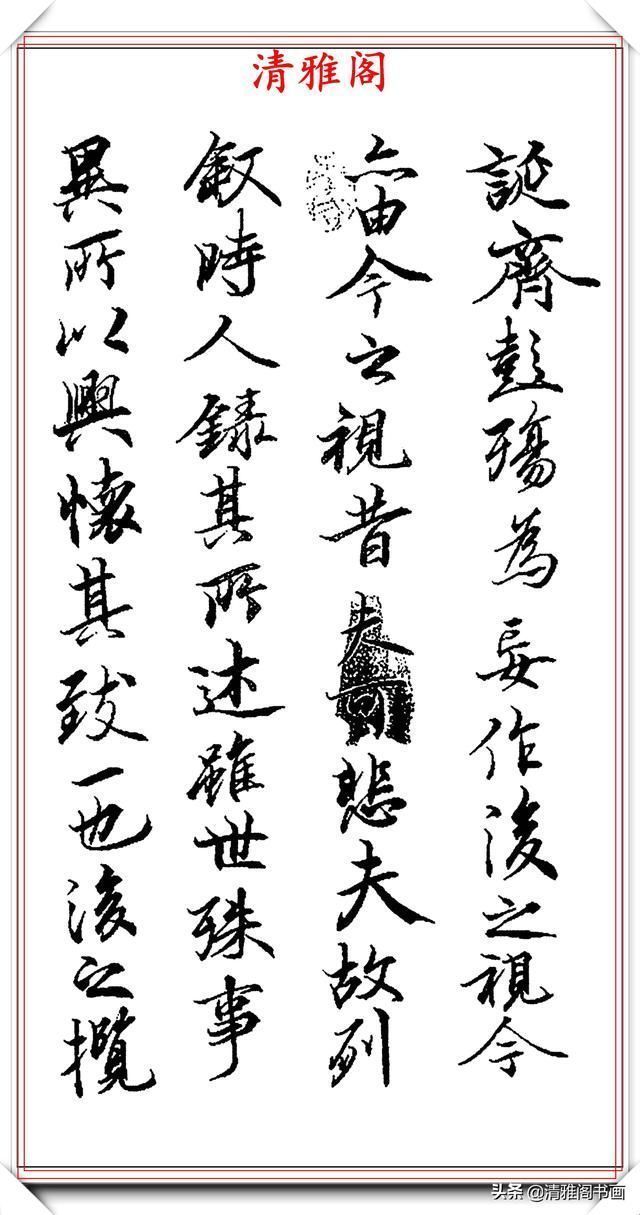 清雅阁
誕齊彭殤為妄作後之視今
亦由今之視昔可悲夫故列
叙時人錄其所述雖世殊事
異所以興懷其致一也後之攬
头条 @清雅阁书画